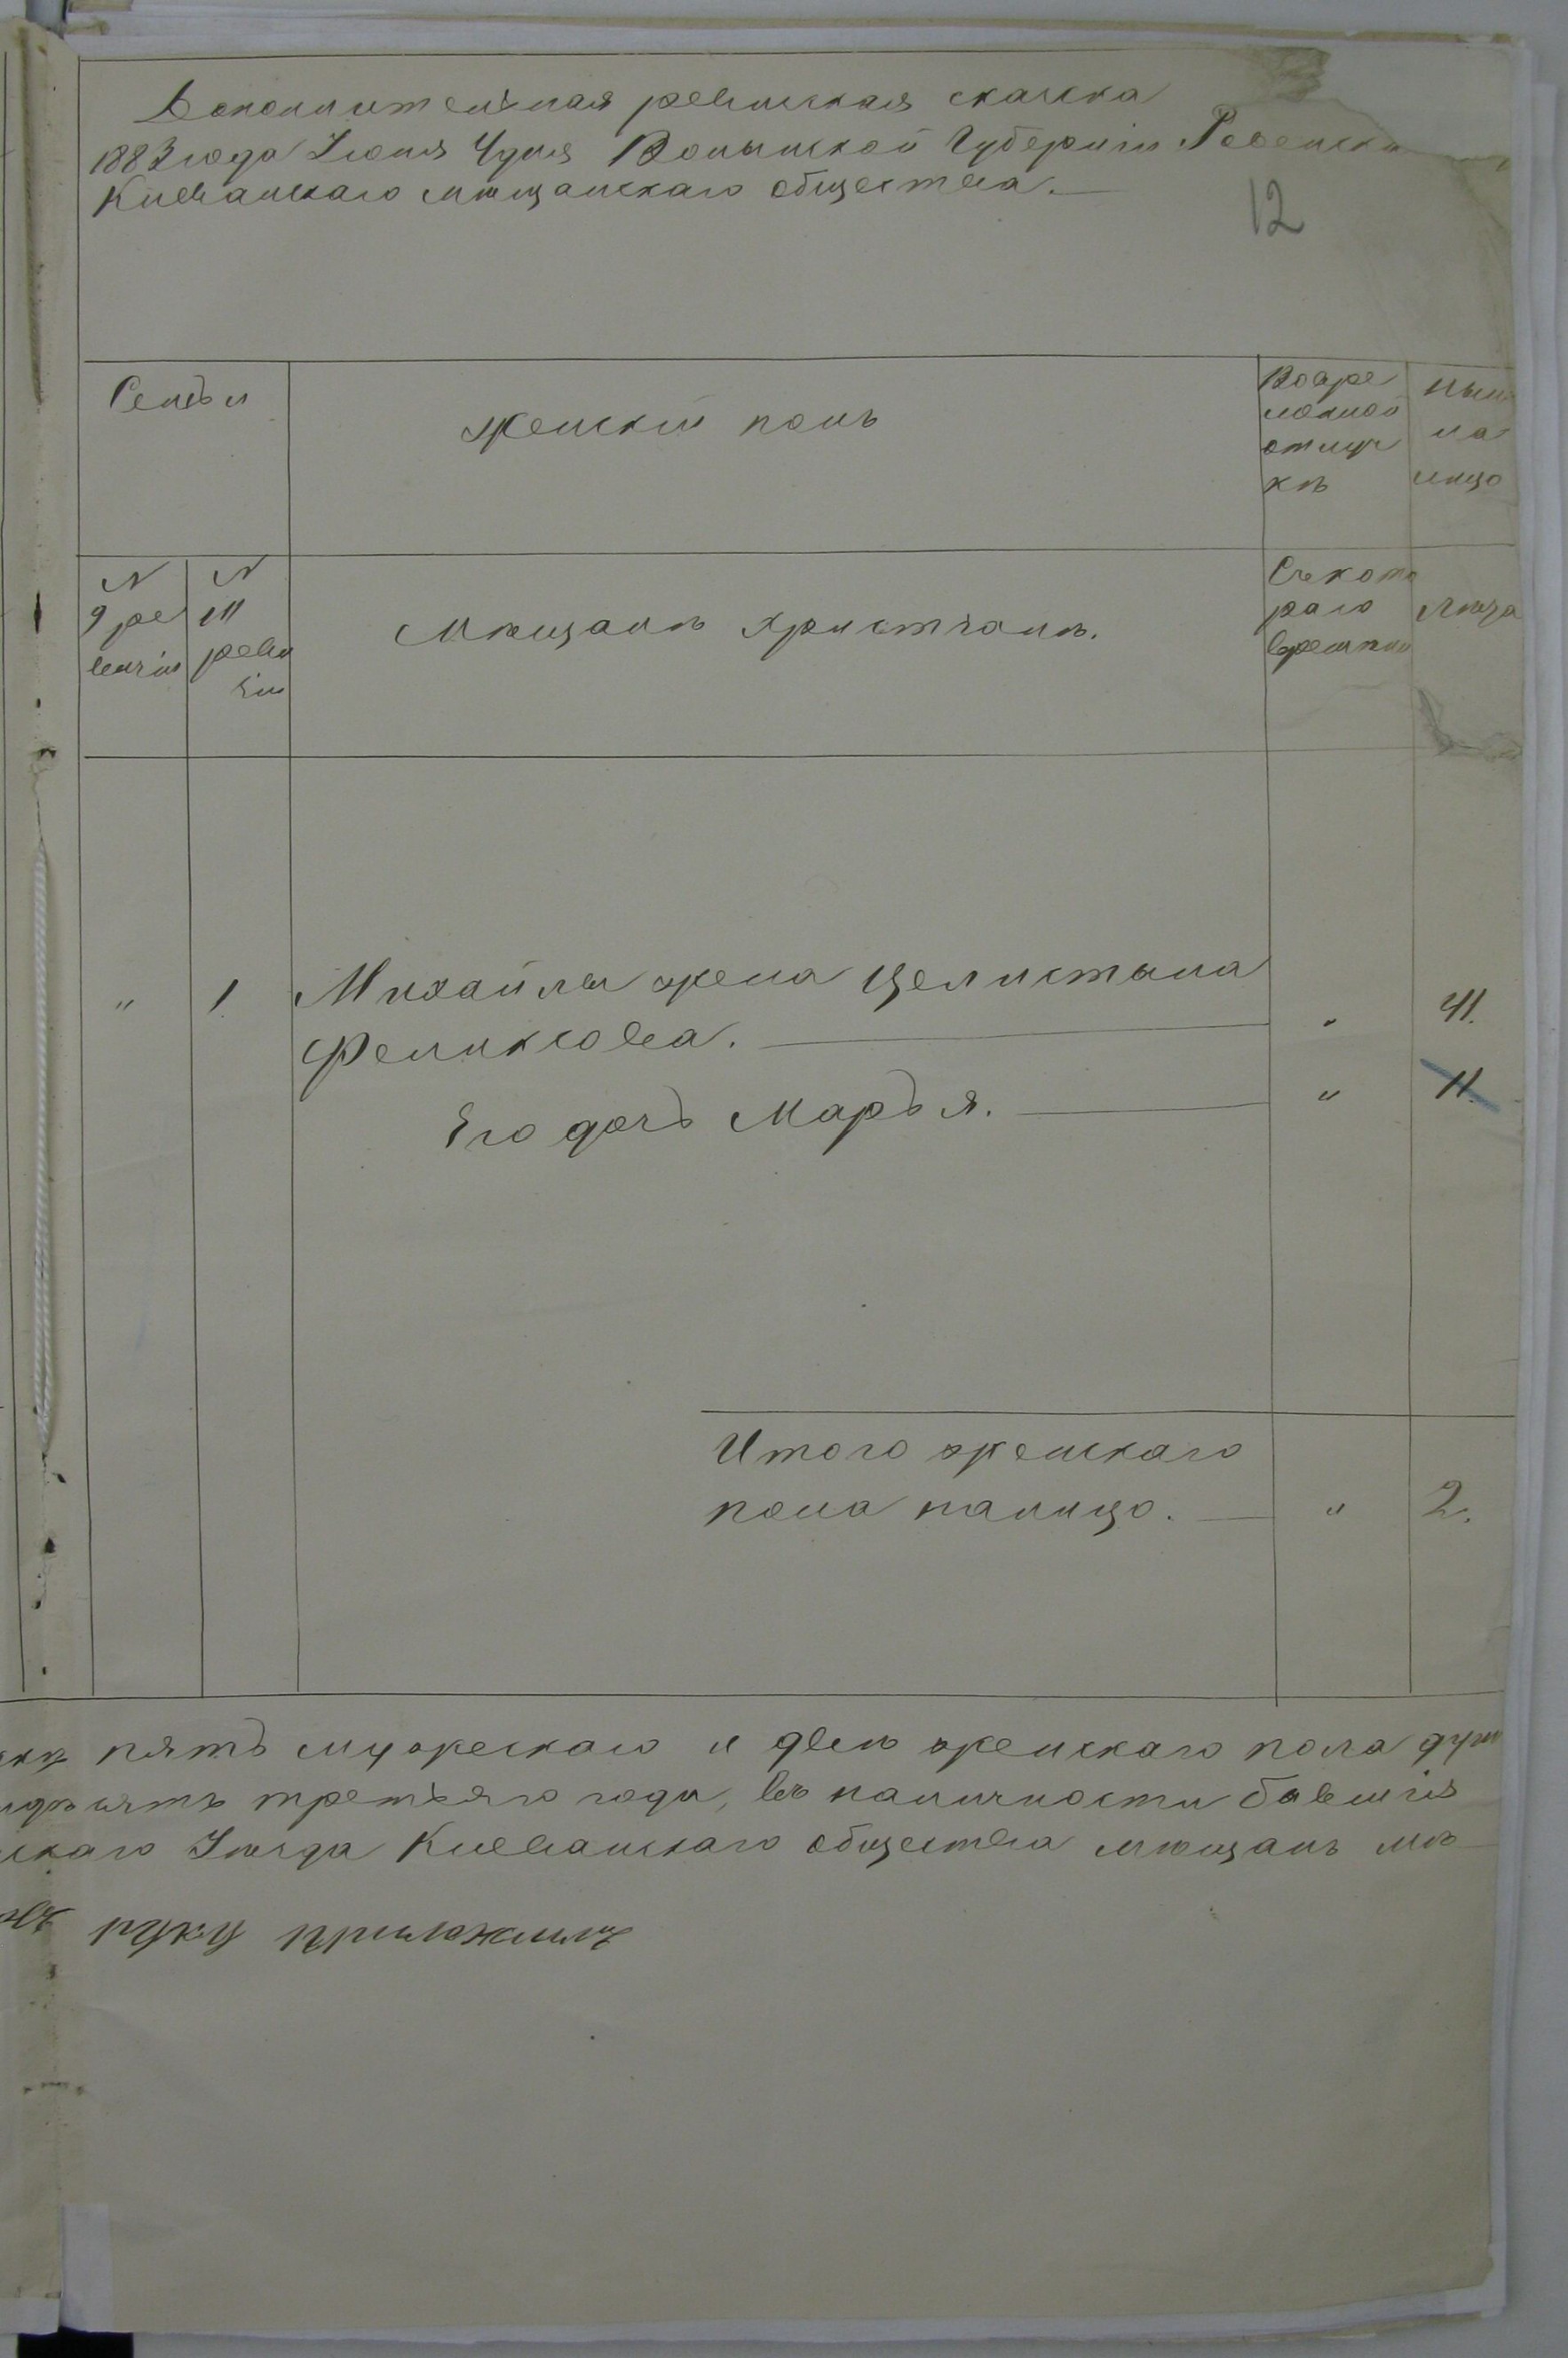 Дополнительная ревизская сказка
1883 года Июня 4 дня Волынской Губернiи Ровенска
Клеванскаго мѣщанскаго общества.
12
Семьи
Женскiй полъ
Вовре
менной
отлуч
кѣ
Нын
на
лицо
N
9 ре
визiи
N
10
реви
зiи
Мѣщанъ христiанъ.
Съ кото
раго
времени
Лѣта
" 1 Михайлы жена Целистына
Фемиксова. " 41.
Его дочь Марья. " 11.
Итого женскаго
пола налицо. " 2.
пять мужескаго и двѣ женскаго пола душ
третьяго года, въ наличности бывшiя
скаго Уѣзда Клеванскаго общества мѣщанъ
руку приложилъ